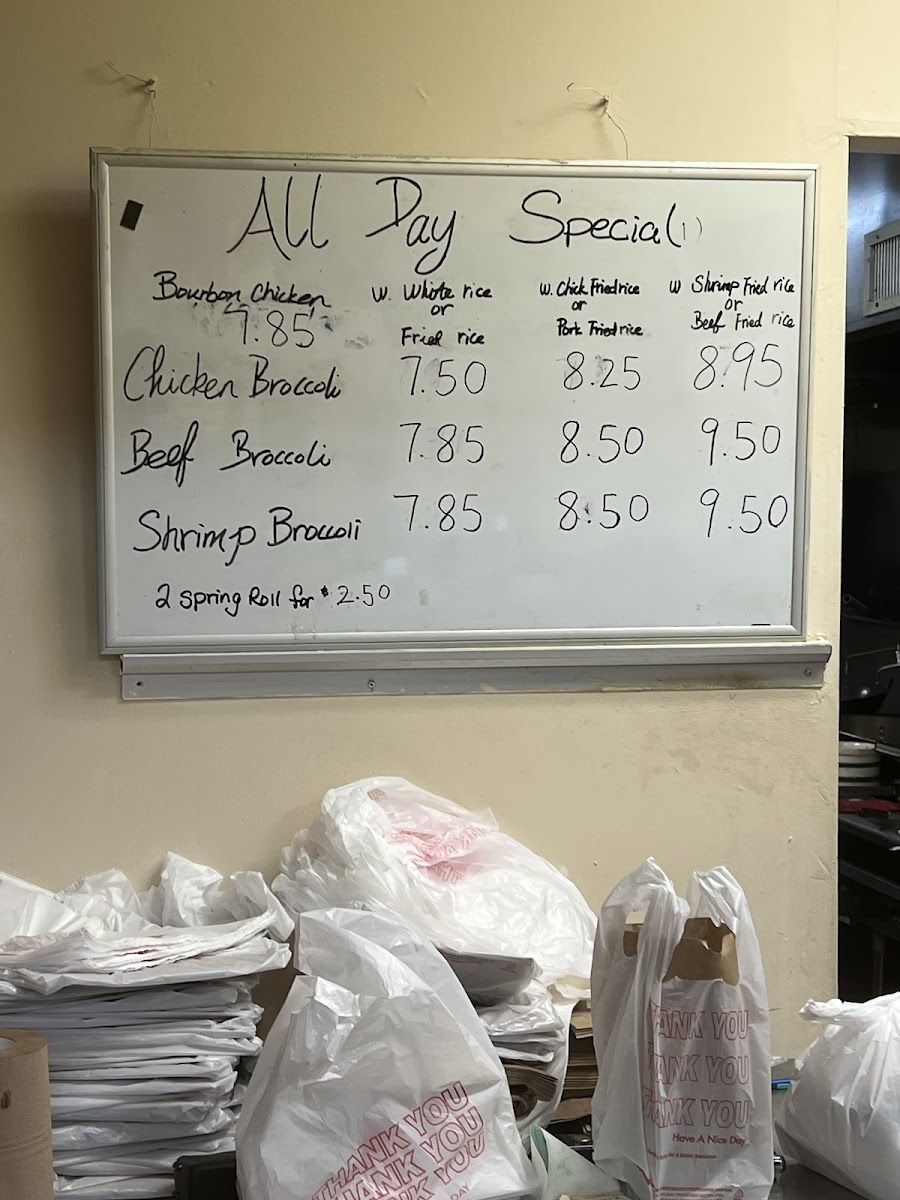 All Day Special(1)
Bourbon Chicken
7.85
w. White rice
or
Fried rice
w. Chick Fried rice
or
Pork Fried rice
w Shrimp Fried rice
or
Beef Fried rice
Chicken Broccoli 7.50 8.25 8.95
Beef Broccoli 7.85 8.50 9.50
Shrimp Broccoli 7.85 8.50 9.50
2 Spring Roll for $2.50
THANK YOU
THANK YOU
THANK YOU
DAY
ANK YOU
ANK YOU
ANK YOU
Have A Nice Day